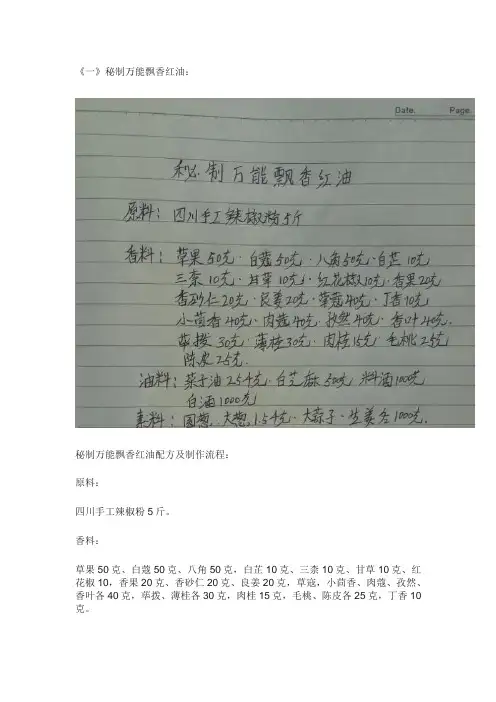 《一》秘制万能飘香红油：
Date. Page.
秘制万能飘香红油
原料：四川手工辣椒粉5斤
香料：草果50克·白蔻50克·八角50克·白芷10克
三柰10克·甘草10克·红花椒10克·香果20克
香砂仁20克·良姜20克·草蔻40克·丁香10克
小茴香40克·肉蔻40克·孜然40克·香叶40克.
荜拨30克·薄桂30克·肉桂15克·毛桃25克
陈皮25克.
油料：菜子油25千克·白芝麻500克 料酒1000克
白酒1000克
素料：圆葱.大葱1.5千克·大蒜子·生姜各1000克.
秘制万能飘香红油配方及制作流程：
原料：
四川手工辣椒粉5斤。
香料：
草果50克、白蔻50克、八角50克，白芷10克、三柰10克、甘草10克、红
花椒10，香果20克、香砂仁20克、良姜20克，草寇，小茴香、肉蔻、孜然、
香叶各40克，荜拨、薄桂各30克，肉桂15克，毛桃、陈皮各25克，丁香10
克。